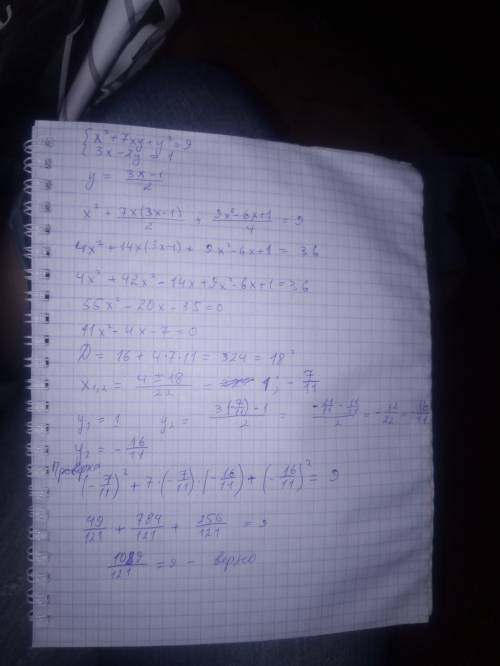 { x² + 7xy + y² = 9
3x - 2y = 1
y = (3x - 1)/2
x² + 7x(3x-1)/2 + (9x² - 6x + 1)/4 = 9
4x² + 14x(3x-1) + 9x² - 6x + 1 = 36
4x² + 42x² - 14x + 9x² - 6x + 1 = 36
55x² - 20x - 35 = 0
11x² - 4x - 7 = 0
D = 16 + 4·7·11 = 324 = 18²
x₁,₂ = (4 ± 18)/22 = 1; -7/11
y₁ = 1 y₂ = (3(-7/11) - 1)/2 = (-21/11 - 11/11)/2 = -32/22 = -16/11
y₂ = -16/11
Проверка
(-7/11)² + 7·(-7/11)·(-16/11) + (-16/11)² = 9
49/121 + 784/121 + 256/121 = 9
1089/121 = 9 - верно